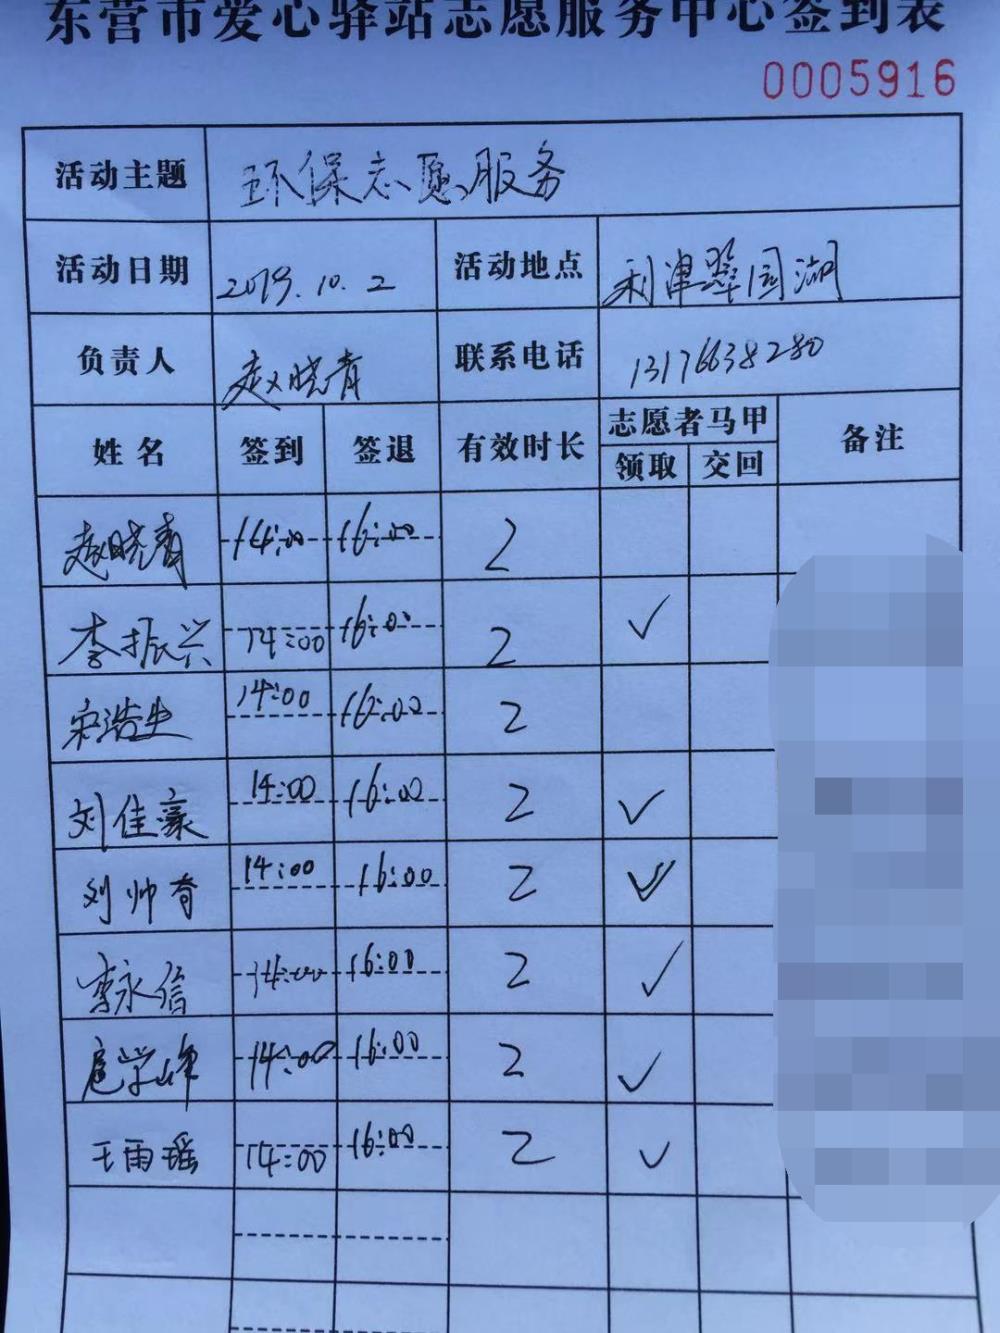 东营市爱心驿站志愿服务中心签到表
0005916
活动主题 环保志愿服务
活动日期 2019.10.2 活动地点 利津翠园湖
负责人 赵晓青 联系电话 13176638280
姓名 签到 签退 有效时长 志愿者马甲 领取 交回 备注
赵晓青 14:00 16:00 2
李振兴 14:00 16:00 2 ✓
宋浩生 14:00 16:00 2
刘佳豪 14:00 16:00 2 ✓
刘帅奇 14:00 16:00 2 ✓
李永信 14:00 16:00 2 ✓
扈学峰 14:00 16:00 2 ✓
王雨瑶 14:00 16:00 2 ✓